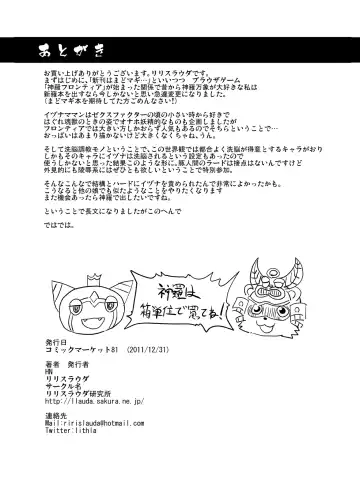 あとがき
お買い上げありがとうございます。リリスラウダです。
まずはじめに、「新刊はまどマギ…」といいつつ　ブラウザゲーム
「神羅フロンティア」が始まった関係で昔から神羅万象が大好きな私は
新羅本を出すなら今しかないと思い急遽変更になりました。
(まどマギ本を期待してた方ごめんなさい！)
イヅナママンはゼクスファクターの頃の小さい時から好きで
はぐれ魂獣のときの姿でオナホ妖精的なものも企画しましたが
フロンティアでは大きい方しかおらず人気もあるのでそちらということで…
おっぱいはあまり描かないけど大きくなくちゃね、うん。
そして洗脳調教モノということで、この世界観では都合よく洗脳が得意とするキャラがおり
しかもそのキャラにイヅナは洗脳されるという設定もあったので
使うしかないと思った結果このような形に。豚人間のラードは接点はないんですけど
外見的にも陵辱系にはぜひとも欲しいということで特別参加。
そんなこんなで結構とハードにイヅナを責められたんで非常によかったかも。
こうなると他の娘でも似たようなことをやりたくなりますので
また機会あったら神羅で出したいですね。
ということで長文になりましたがこのへんで
ではでは。
神羅は
箱単位で買ってね！
発行日
コミックマーケット81　(2011/12/31)
著者　発行者
HN
リリスラウダ
サークル名
リリスラウダ研究所
http://llauda.sakura.ne.jp/
連絡先
Mail:ririslauda@hotmail.com
Twitter:lithia